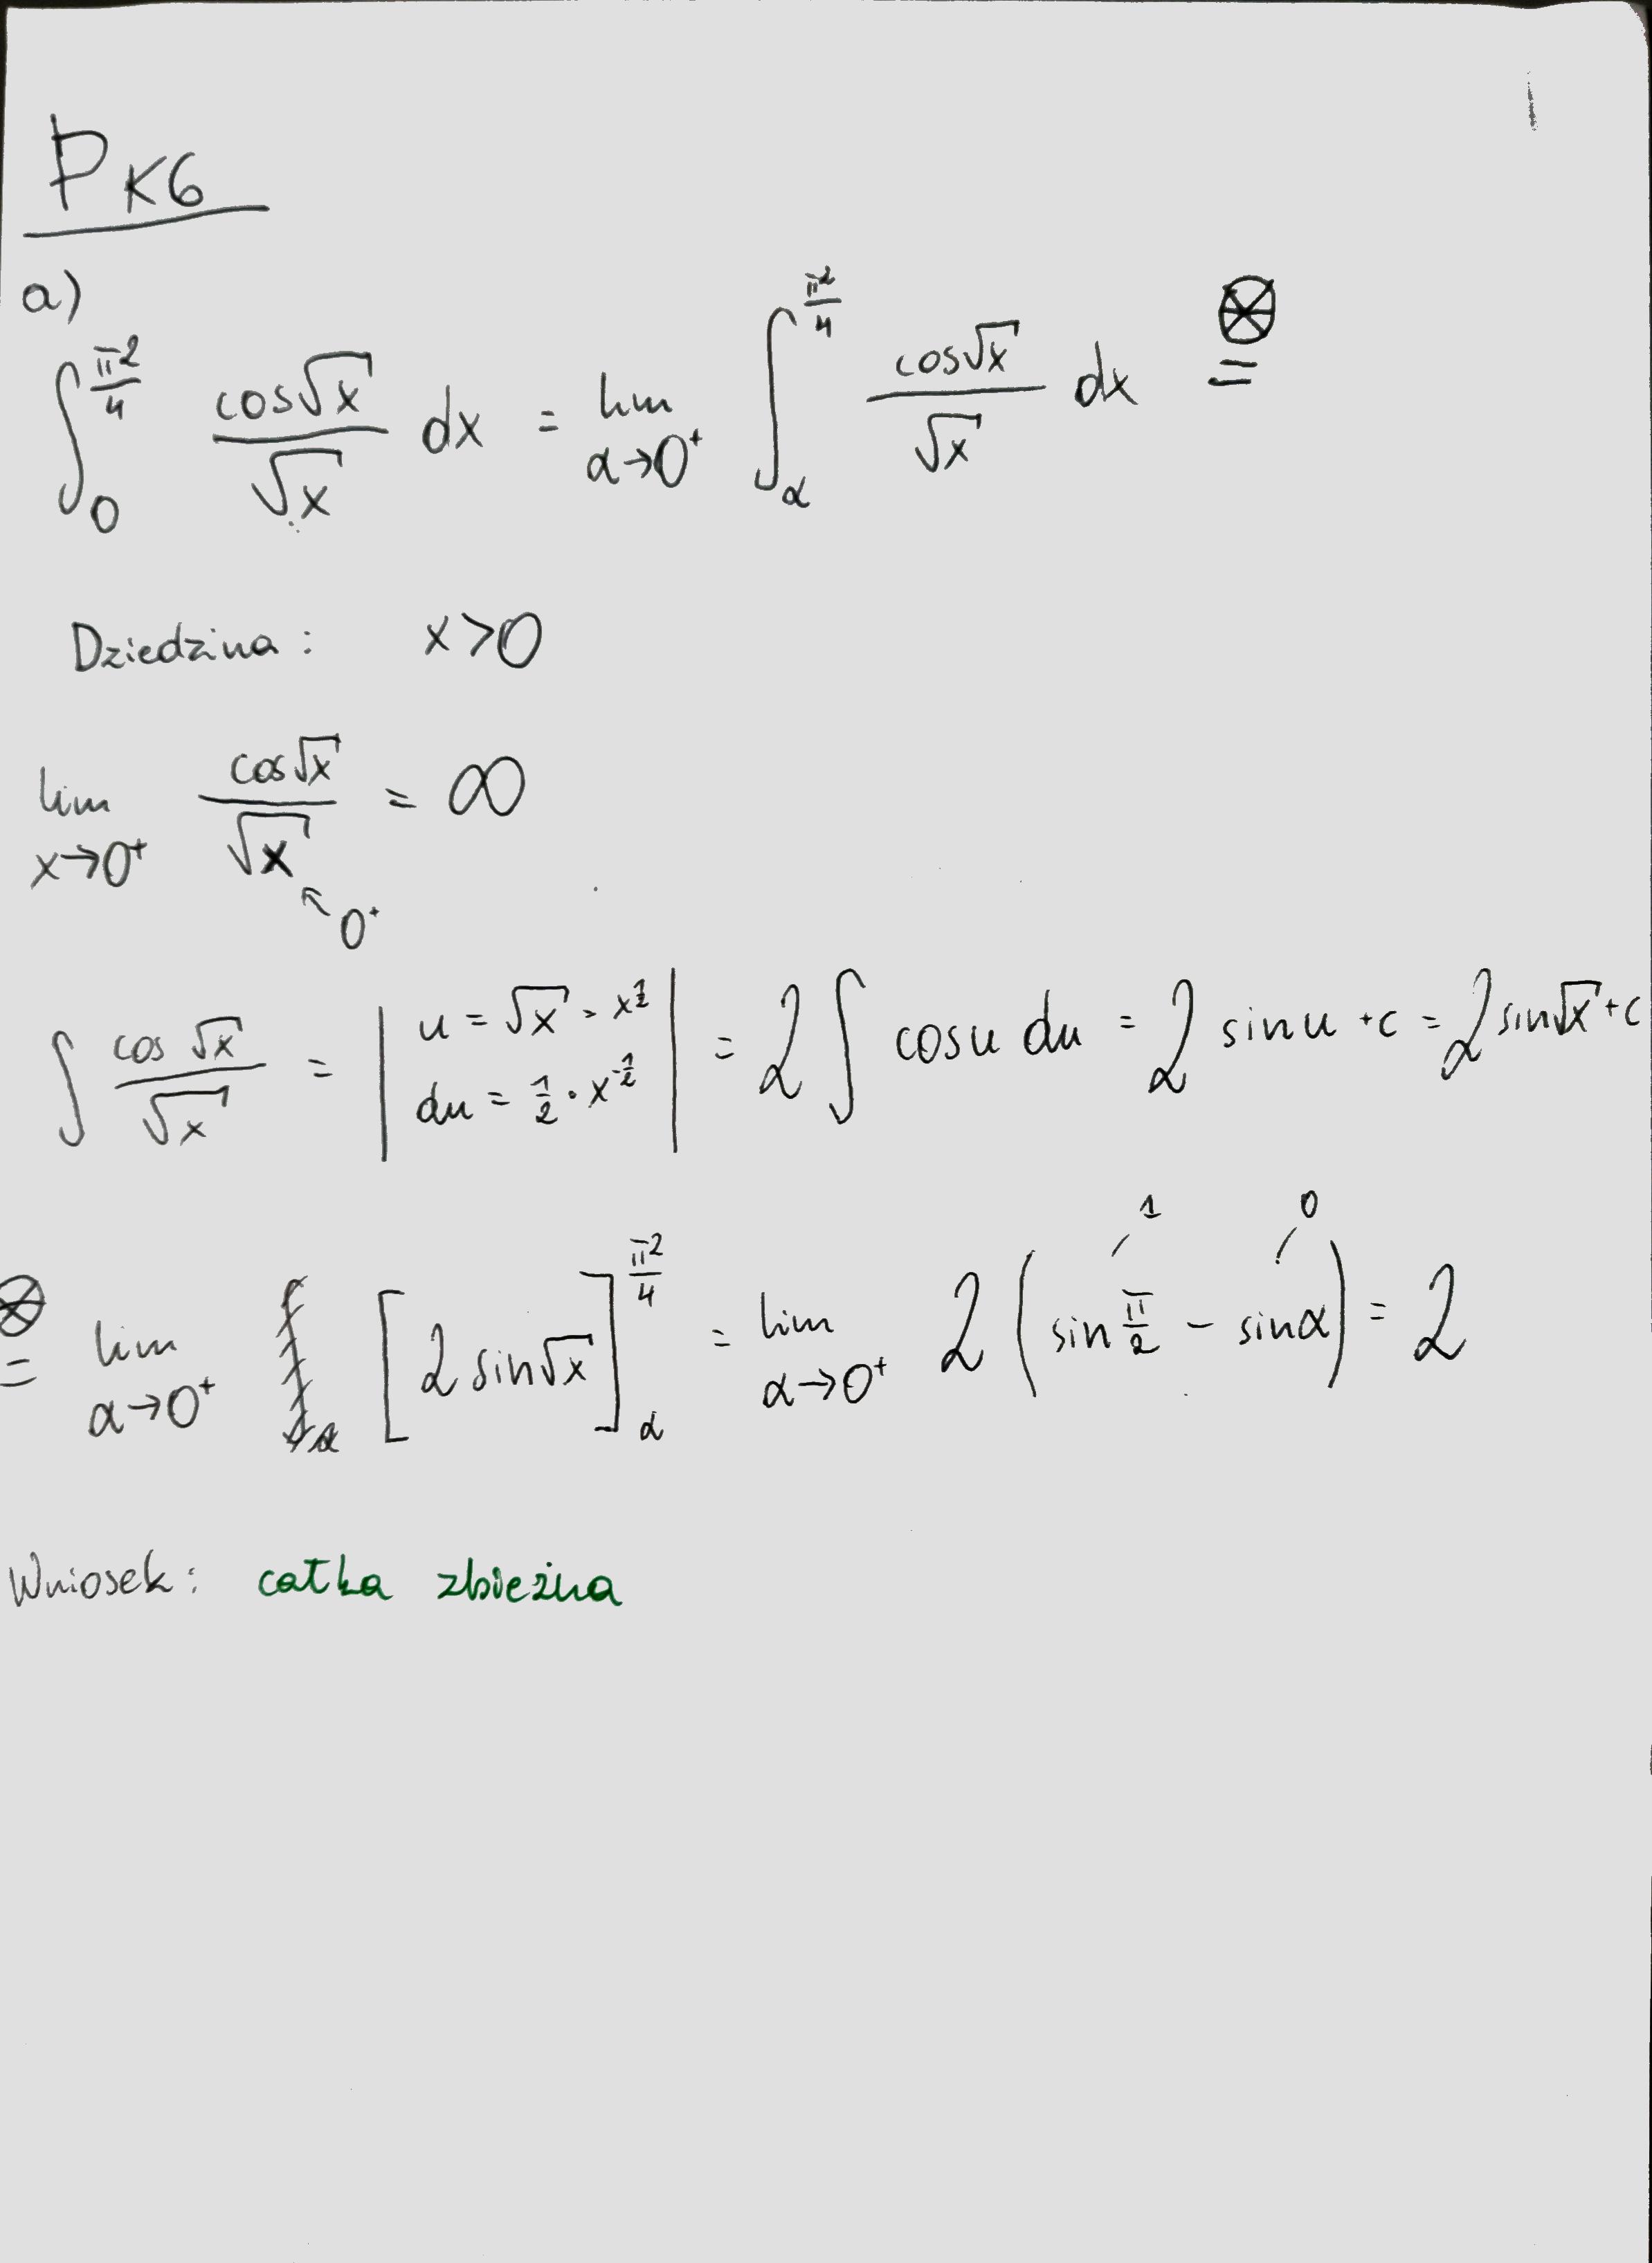 PK6
a)
∫₀^{π²/4} cos√x / √x dx = lim_{α→0⁺} ∫_α^{π²/4} cos√x / √x dx ⊛=
Dziedzina: x>0
lim_{x→0⁺} cos√x / √x = ∞
↖ 0⁺
∫ cos√x / √x = | u = √x = x^{1/2} du = 1/2 · x^{-1/2} | = 2 ∫ cosu du = 2 sinu + c = 2 sin√x + c
⊛= lim_{α→0⁺} [2 sin√x]_α^{π²/4} = lim_{α→0⁺} 2 (sin π/2 - sinα) = 2
1 0
Wniosek: całka zbieżna